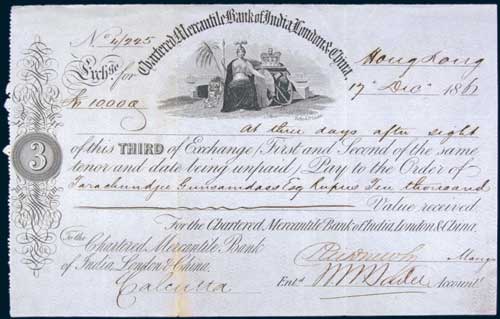 Chartered Mercantile Bank of India, London & China
No 4/225
Exchge for
Rs 10000
Hong Kong
17th Decr 1861
3
At three days after sight
of this THIRD of Exchange (First and Second of the same
tenor and date being unpaid) Pay to the Order of
Rupees Ten thousand
Value received
For the Chartered Mercantile Bank of India, London & China.
To the
Chartered Mercantile Bank
of India, London & China.
Calcutta
Mangr
Entd Accountt